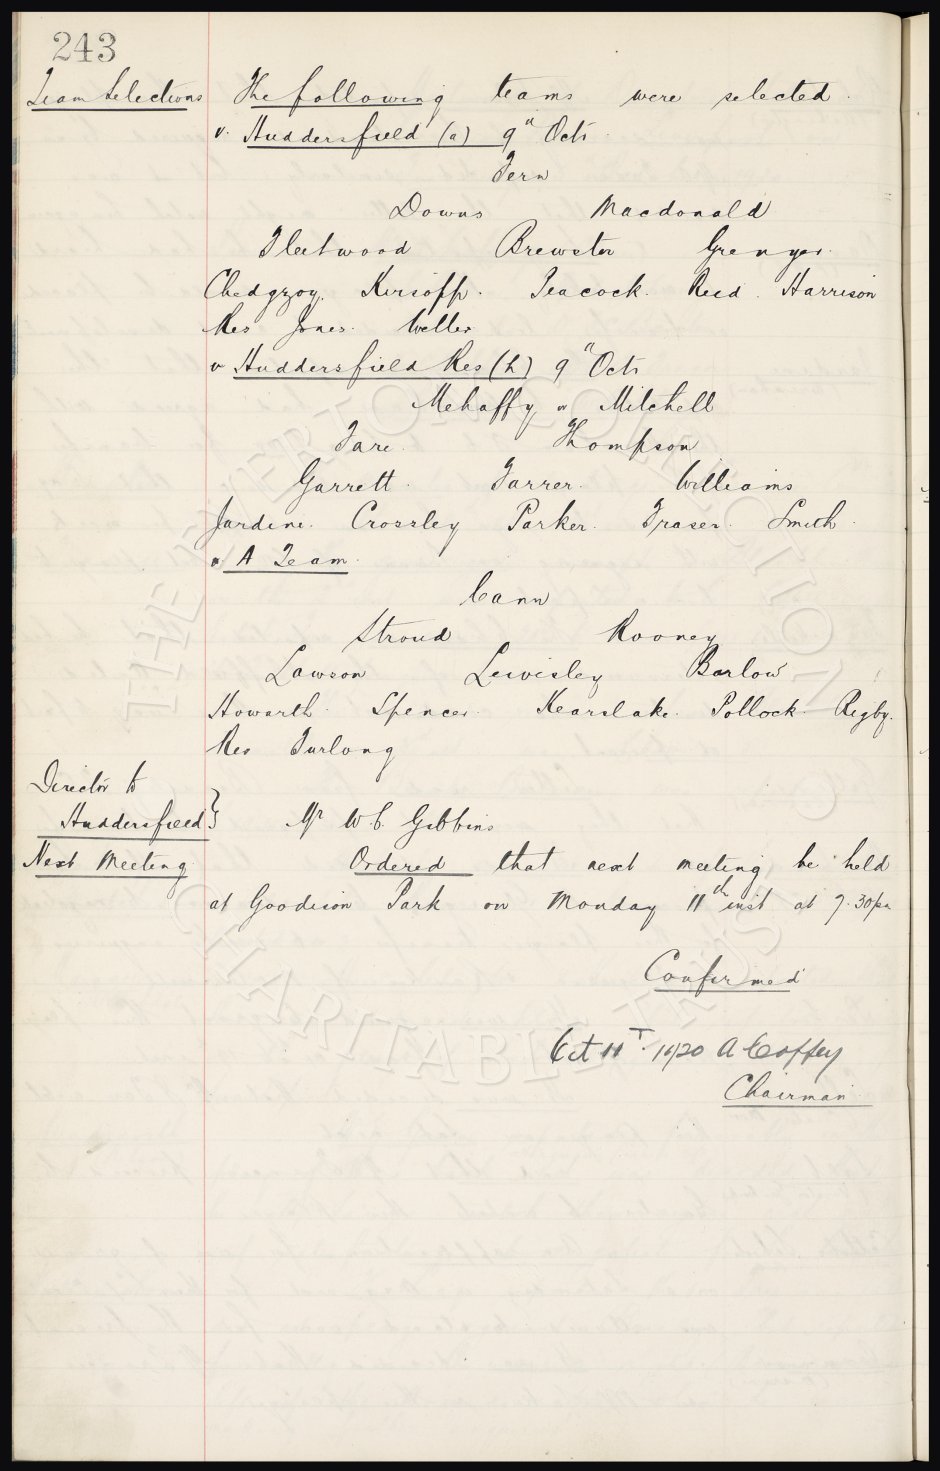 243
Team Selections The following teams were selected.
v. Huddersfield (a) 9th Oct
Fern
Downs Macdonald
Fleetwood Brewster Grenyer.
Chedgzoy. Kirsopp. Peacock. Reid. Harrison
Res Jones. Weller
v Huddersfield Res (h) 9th Oct
Mehaffy or Mitchell
Fare. Thompson
Garrett. Farrer. Williams
Jardine. Crossley Parker. Fraser. Smith.
A Team.
Cann
Stroud Rooney
Lawson Lewisley Barlow
Howarth. Spencer. Kearslake. Pollock. Rigby.
Res Furlong
Director to
Huddersfield } Mr W C Gibbins
Next Meeting Ordered that next meeting be held
at Goodison Park on Monday 11th inst at 7.30pm
Confirmed
Oct 11th 1920 A Coffey
Chairman
THE EVERTON COLLECTION
CHARITABLE TRUST